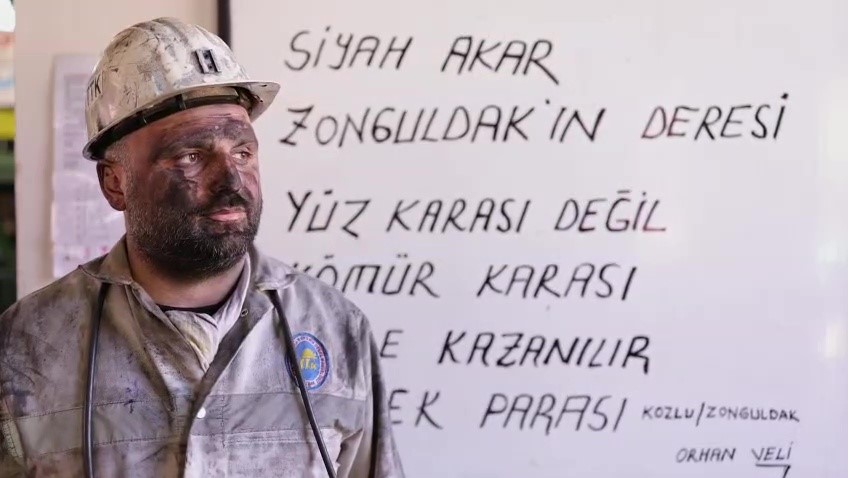 SİYAH AKAR
ZONGULDAK'IN DERESİ
YÜZ KARASI DEĞİL
KÖMÜR KARASI
KAZANILIR
PARASI
KOZLU/ZONGULDAK
ORHAN VELİ